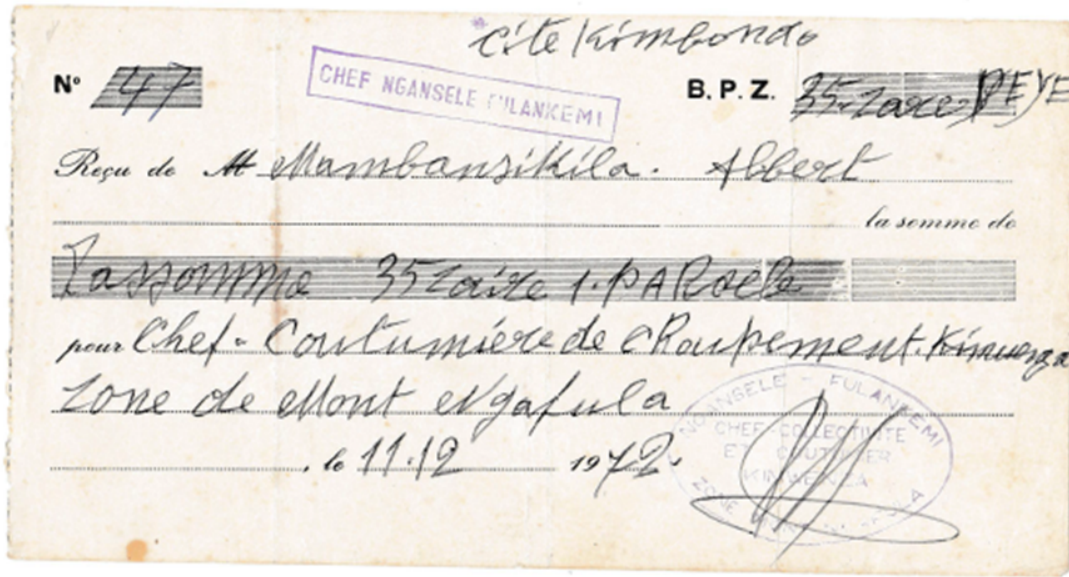 Cité Kimbondo
N° 47
CHEF NGANSELE FULANKEMI
B. P. Z. 35 Zaïre PEYE
Reçu de M Mambanzikila. Albert
la somme de
Lassomme 35 Zaïre 1. PARCELLE
pour Chef - Coutumière de Groupement. Kimwenza
Zone de Mont Ngafula
, le 11.12 1972.
NGANSELE - FULANKEMI
CHEF-COLLECTIVITE
ET COUTUMIER
KIMWENZA
ZONE